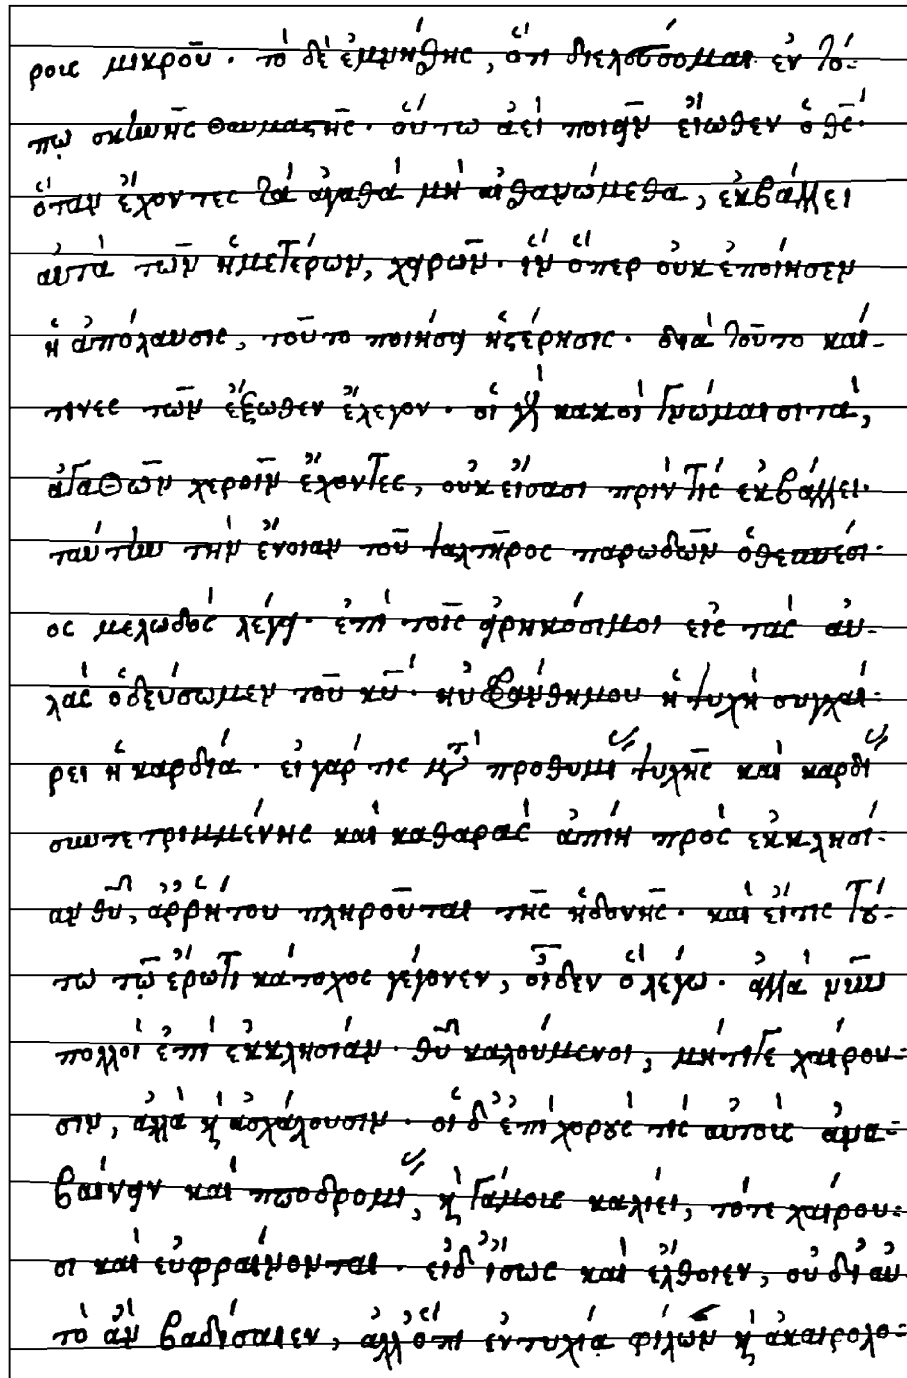 ροις μικροῦ. τὸ δὲ ἐμμήθης, ὅτι διελθόομαι ἐν τό-
πῳ σκηνῆς θαυμαστῆς. οὕτω ἀεὶ ποιεῖν εἴωθεν ὁ θς̄.
ὅταν ἔχοντες τὰ ἀγαθὰ μὴ αἰσθανώμεθα, ἐκβάλλει
αὐτὰ τῶν ἡμετέρων, χειρῶν. ἵν ὅπερ οὐκ ἐποίησεν
ἡ ἀπόλαυσις, τοῦτο ποιήσῃ ἡ στέρησις. διὰ τοῦτο καί
τινες τῶν ἔξωθεν ἔλεγον. οἱ γὰρ κακοὶ γνώμαισι τὰ,
ἀγαθῶν χεροῖν ἔχοντες, οὐκ εἴσασι πρίν τις ἐκβάλλει.
ταύτην τὴν ἔνοιαν τοῦ ψαλτῆρος παρωδῶν ὁ θεσπέσι-
ος μελωδὸς λέγει. ἐπὶ τοῖς εἰρηκόσι μοι εἰς τὰς αὐ-
λὰς ὁδεύσωμεν τοῦ κῡ. ηὐφράνθη μου ἡ ψυχὴ συγχαί-
ρει ἡ καρδία. εἰ γάρ τις μετὰ προθυμίας ψυχῆς καὶ καρδίας
συντετριμμένης καὶ καθαρᾶς ἀπίῃ πρὸς ἐκκλησί-
αν θῡ, ἀρρήτου πληροῦται τῆς ἡδονῆς. καὶ εἴ τις τού-
τω τῷ ἔρωτι κάτοχος γέγονεν, οἶδεν ὃ λέγω. ἀλλὰ μὴν
πολλοὶ ἐπὶ ἐκκλησίαν. θῡ καλούμενοι, μήτι γε χαίρου-
σιν, ἀλλὰ καὶ ἀσχάλουσιν. οἱ δ' ἐπὶ χοροὺς τις αὐτοῖς ἀνα-
βαίνειν καὶ ἱπποδρομίας, καὶ γάμοις καλέει, τότε χαίρου-
σι καὶ εὐφραίνονται. εἰ δ' ἴσως καὶ ἔλθοιεν, οὐ δι αὐ
τὸ ἂν βαδίσαιεν, ἀλλ' ὅτι ἐντυχία φίλων καὶ ἀκαιρολο-